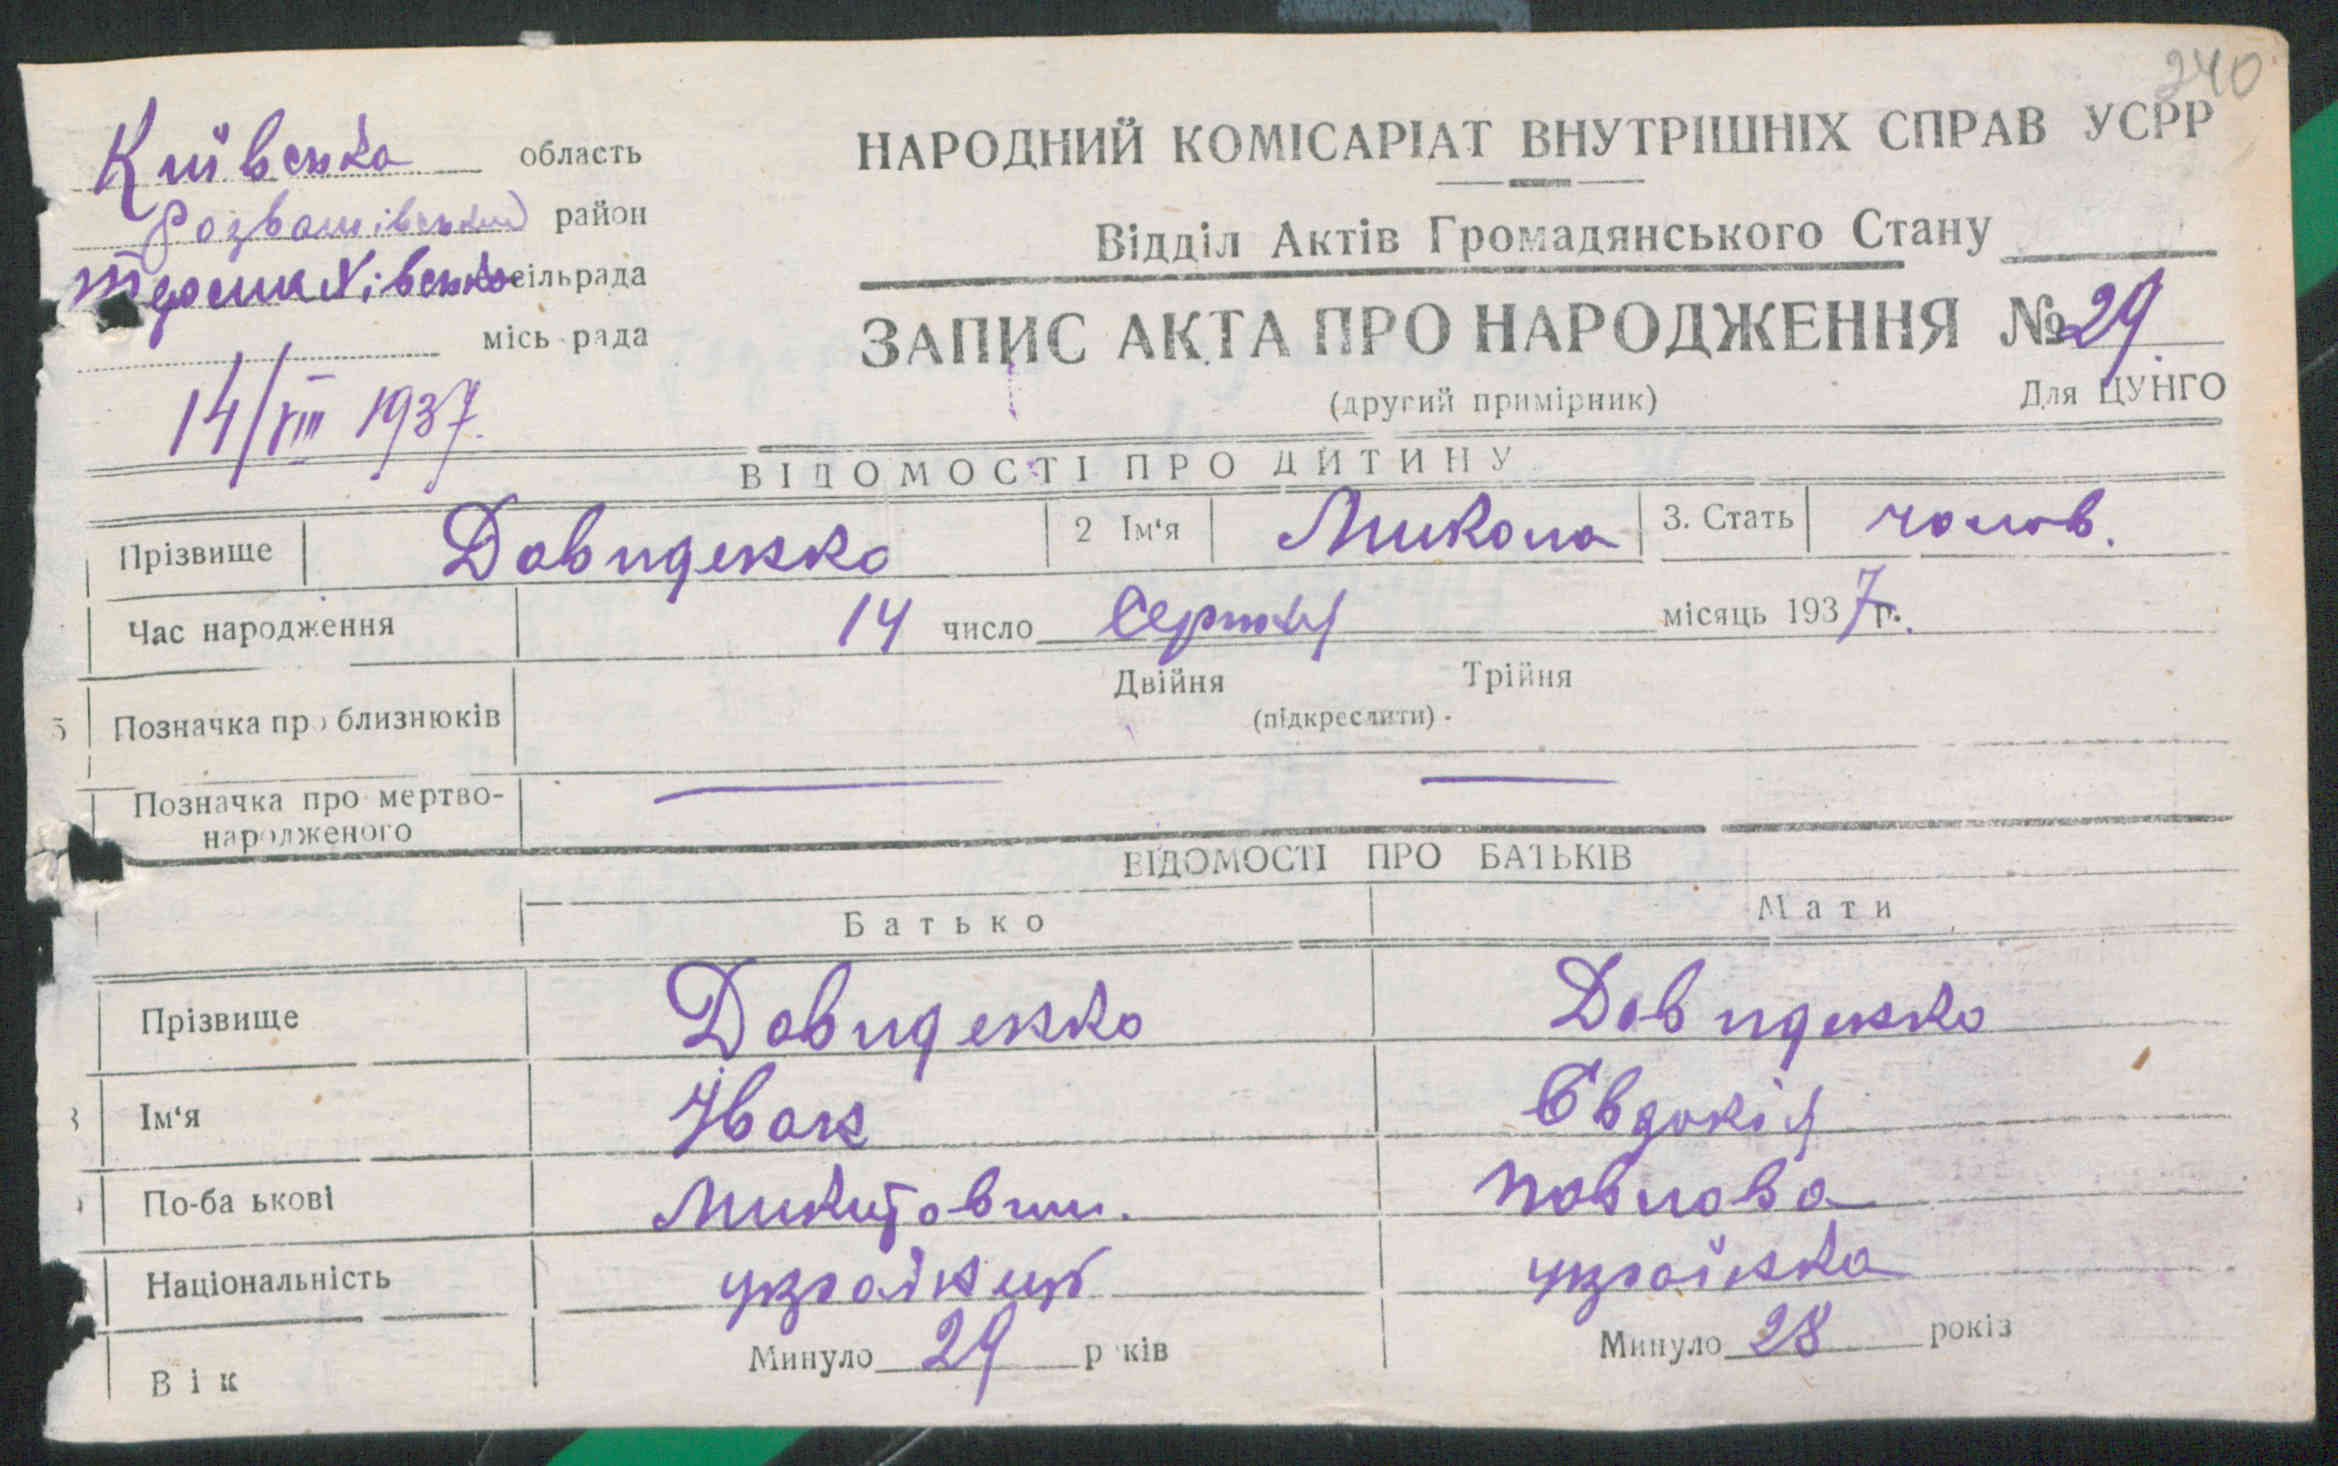 240
Київська область
НАРОДНИЙ КОМІСАРІАТ ВНУТРІШНІХ СПРАВ УСРР
Розважівський район
Відділ Актів Громадянського Стану
сільрада
місь рада
ЗАПИС АКТА ПРО НАРОДЖЕННЯ № 29.
(другий примірник) Для ЦУНГО
14/VIII 1937.
ВІДОМОСТІ ПРО ДИТИНУ
Прізвище Давиденко 2 Ім‘я Микола 3. Стать чолов.
Час народження 14 число Серпня місяць 1937 р.
Двійня Трійня
5 Позначка про близнюків (підкреслити)
Позначка про мертво-
народженого
ВІДОМОСТІ ПРО БАТЬКІВ
Батько Мати
Прізвище Давиденко Давиденко
Ім‘я Іван Євдокія
По-ба ькові Микитович. Павлова
Національність українець українка
Вік Минуло 29 р ків Минуло 28 років